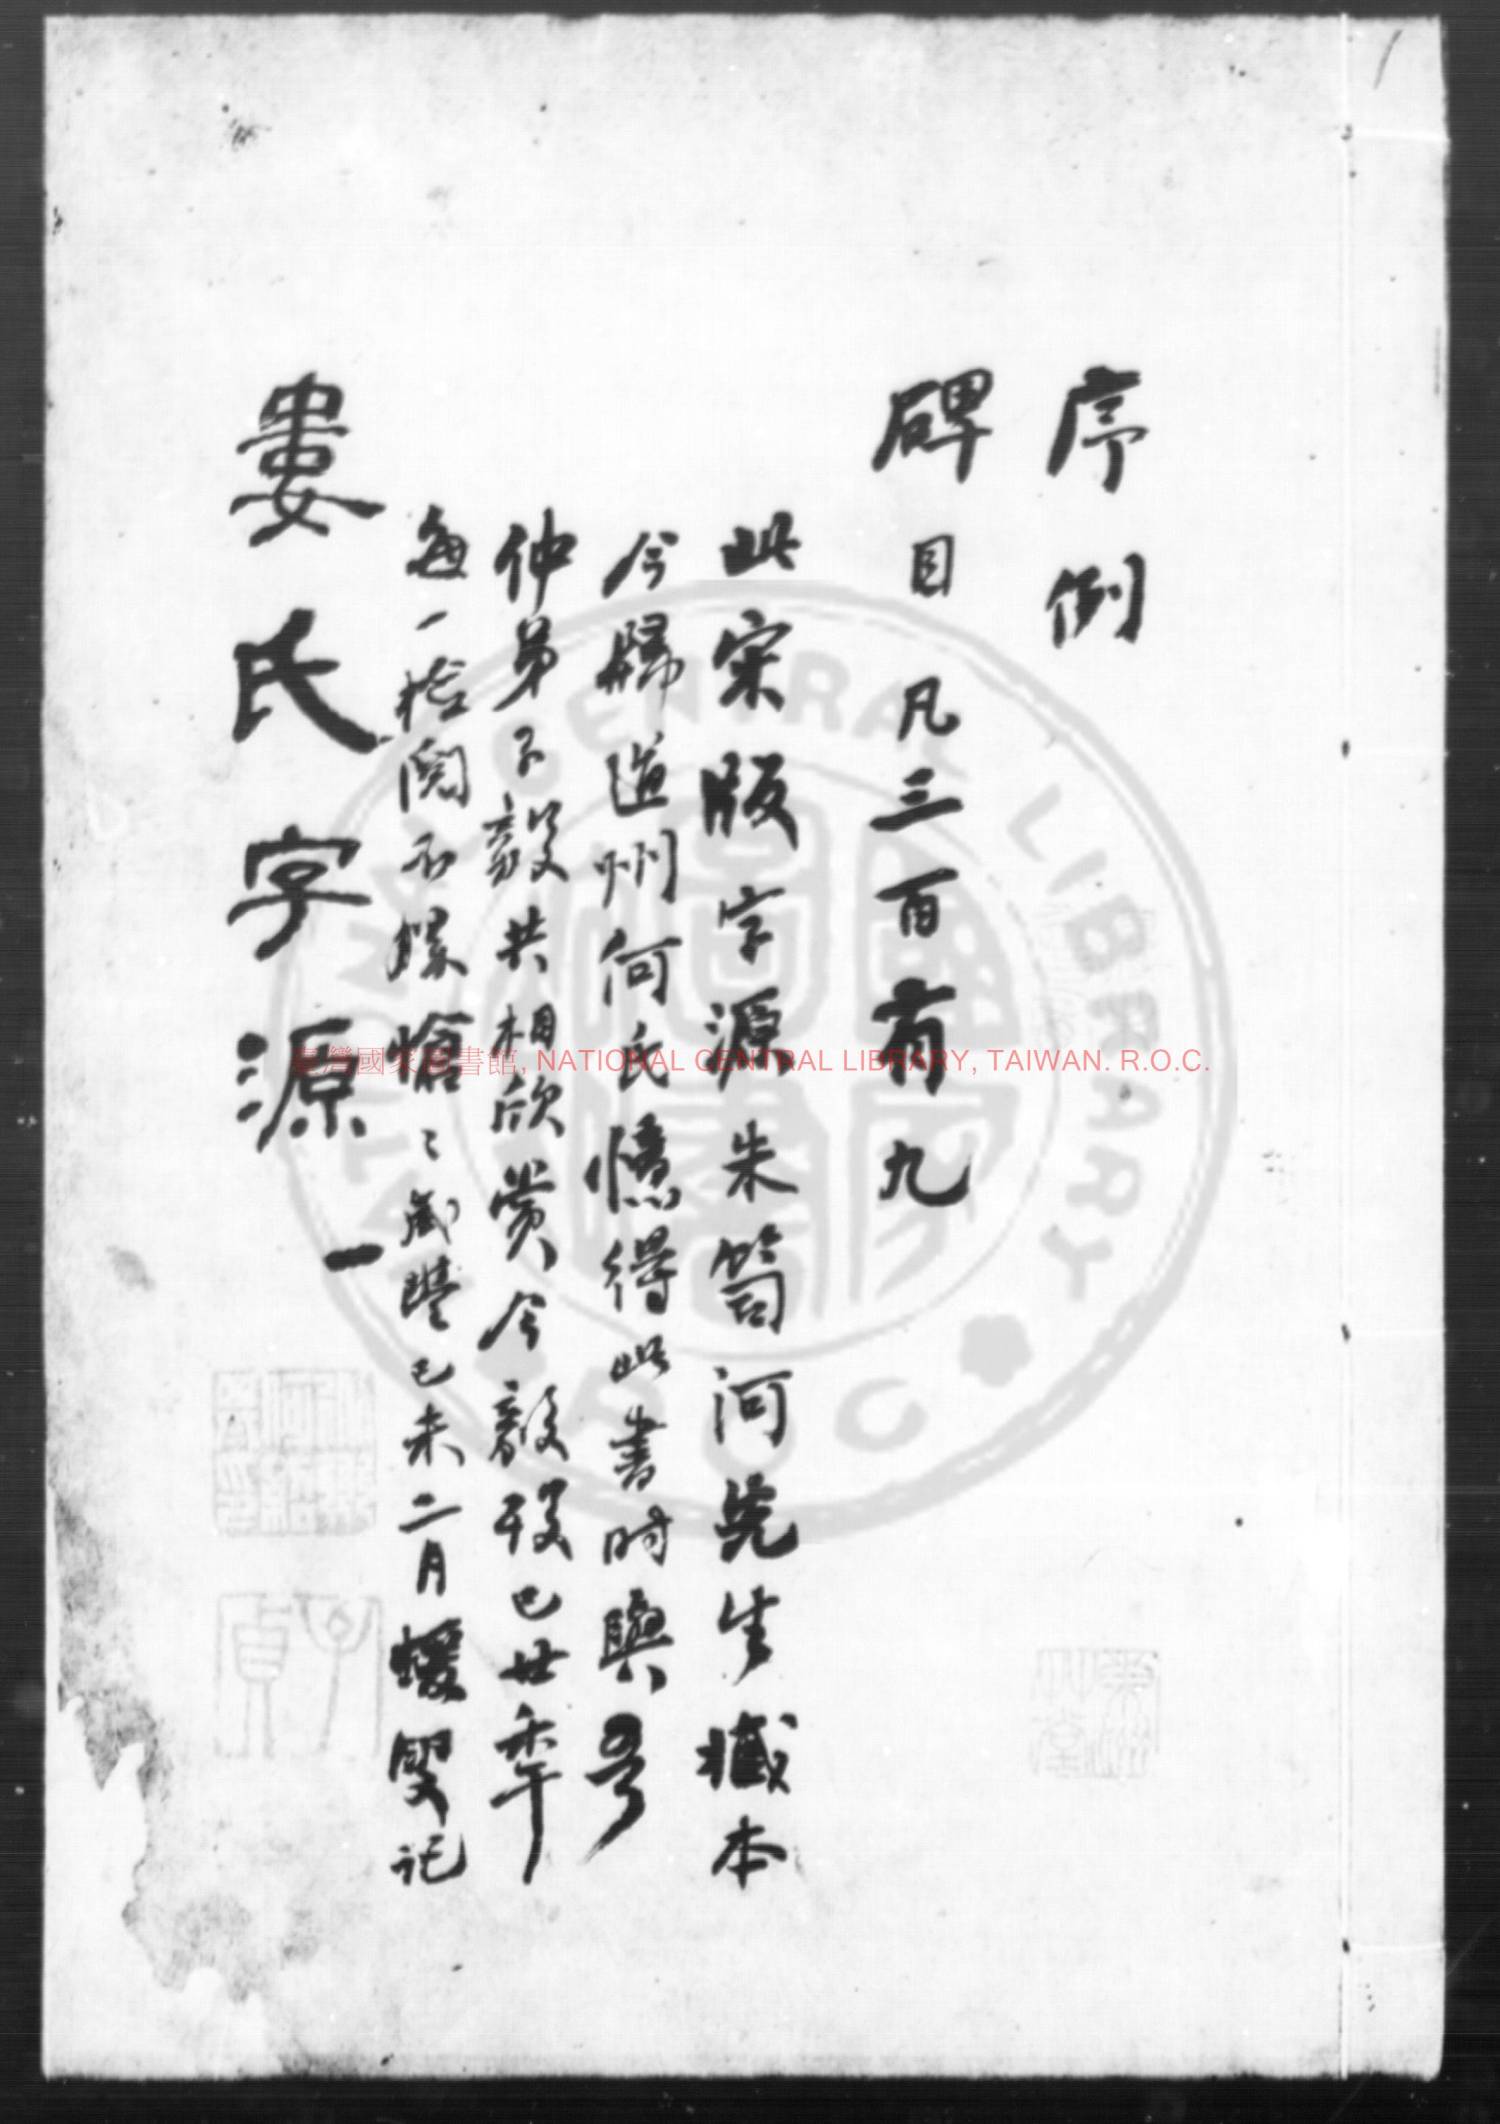 序例
碑目凡三百有九
此宋版字源朱笥河先生藏本
今歸道州何氏憶得此書時與
仲弟子毅共相欣賞今毅歿已廿年
每一拾閱不勝愴〻咸豐己未二月蝯叟記
婁氏字源 一
臺灣國家圖書館, NATIONAL CENTRAL LIBRARY, TAIWAN. R.O.C.
NATIONAL CENTRAL LIBRARY
子貞